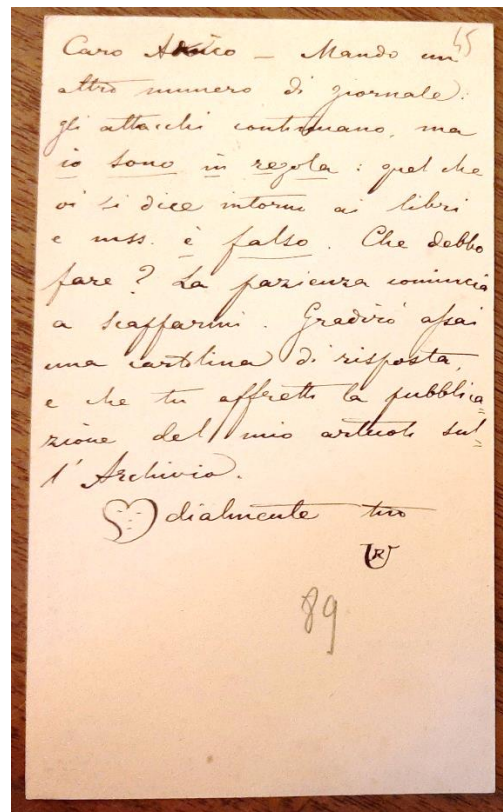 45
Caro Amico — Mando un
altro numero di giornale:
gli attacchi continuano, ma
io sono in regola: quel che
vi si dice intorno ai libri
e mss. è falso. Che debbo
fare? La pazienza comincia
a scapparmi. Gradirò assai
una cartolina di risposta,
e che tu affretti la pubblica=
zione del mio articolo sul=
l'Archivio.
dialmente tuo
UR
89